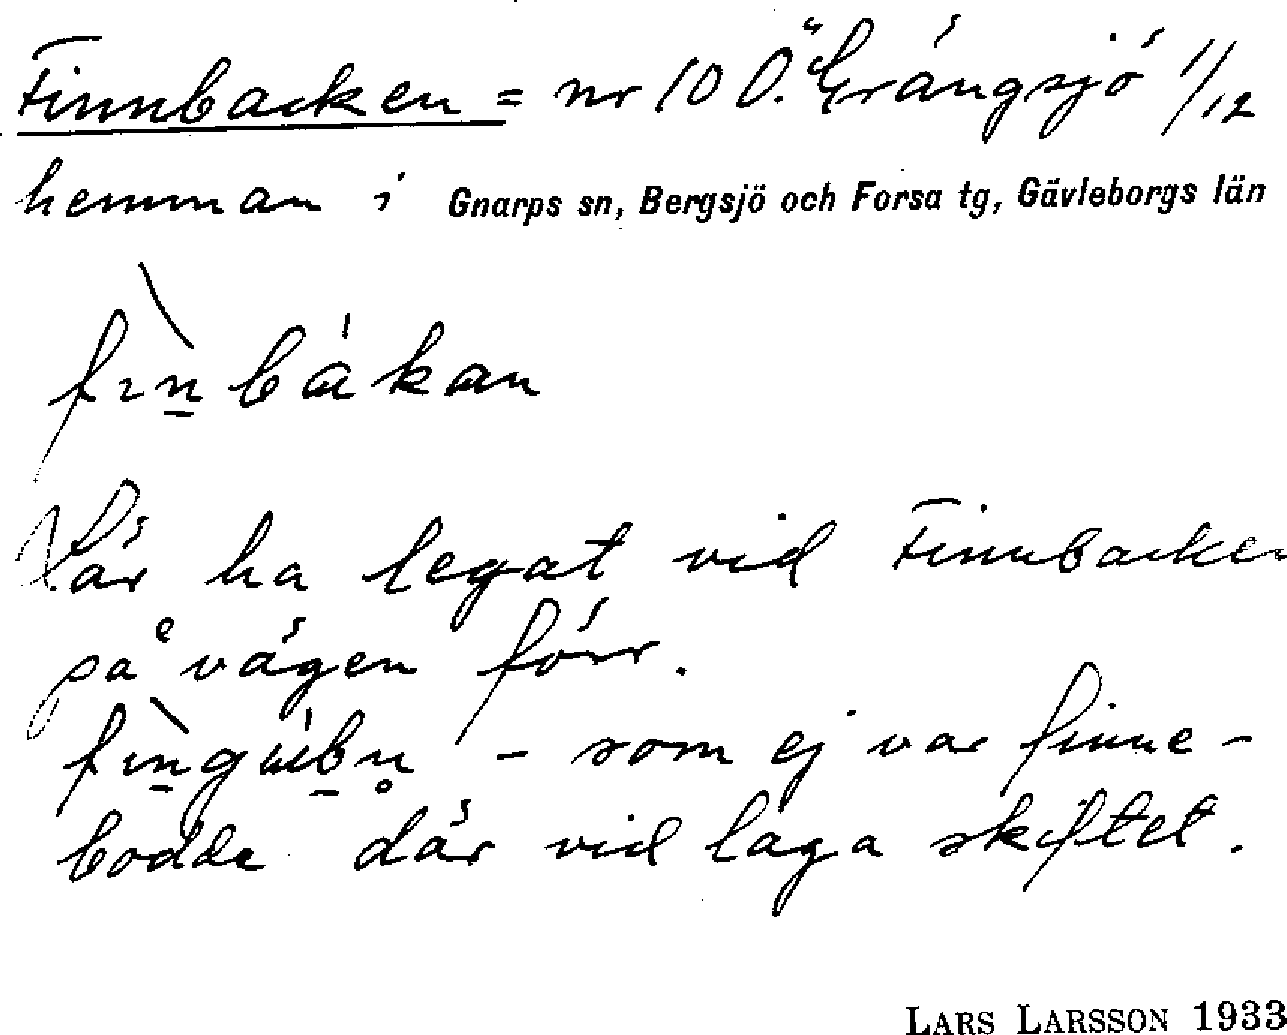 Finnbacken = nr 10 Ö. Grängsjö 1/12
hemman i Gnarps sn, Bergsjö och Forsa tg, Gävleborgs län
fin̠bákan
Lär ha legat vid Finnbacken
på vägen förr.
– som ej var finne –
bodde där vid laga skiftet.
LARS LARSSON 1933